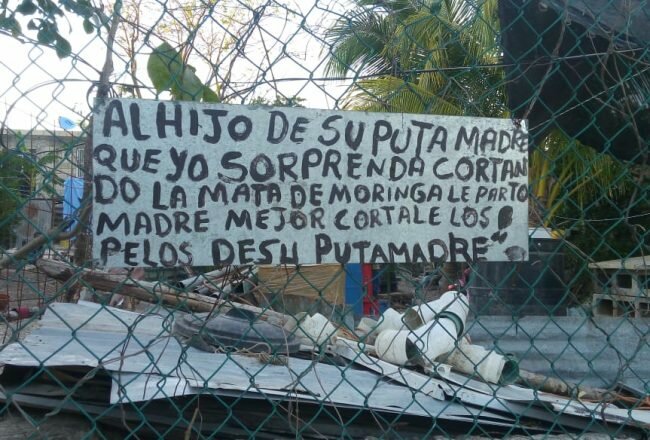 AL HIJO DE SU PUTA MADRE
QUE YO SORPRENDA CORTAN
DO LA MATA DE MORINGA LE PARTO
MADRE MEJOR CORTALE LOS !
PELOS DE SU PUTAMADRE"